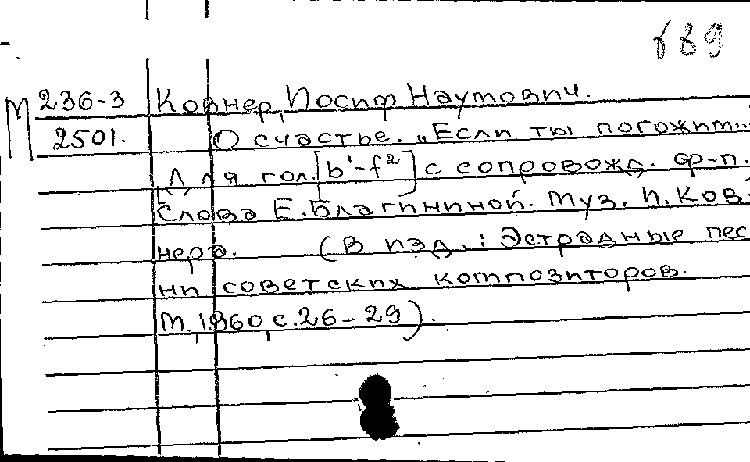 689
М 236-3 Ковнер, Иосиф Наумович.
2501. О счастье. „Если ты погожим...
Для гол. [b¹-f²] с сопровожд. ф-п.
Слова Е. Благининой. Муз. И. Ков-
нера. (В изд.: Эстрадные пес-
ни советских композиторов.
М., 1960, с. 26-29).